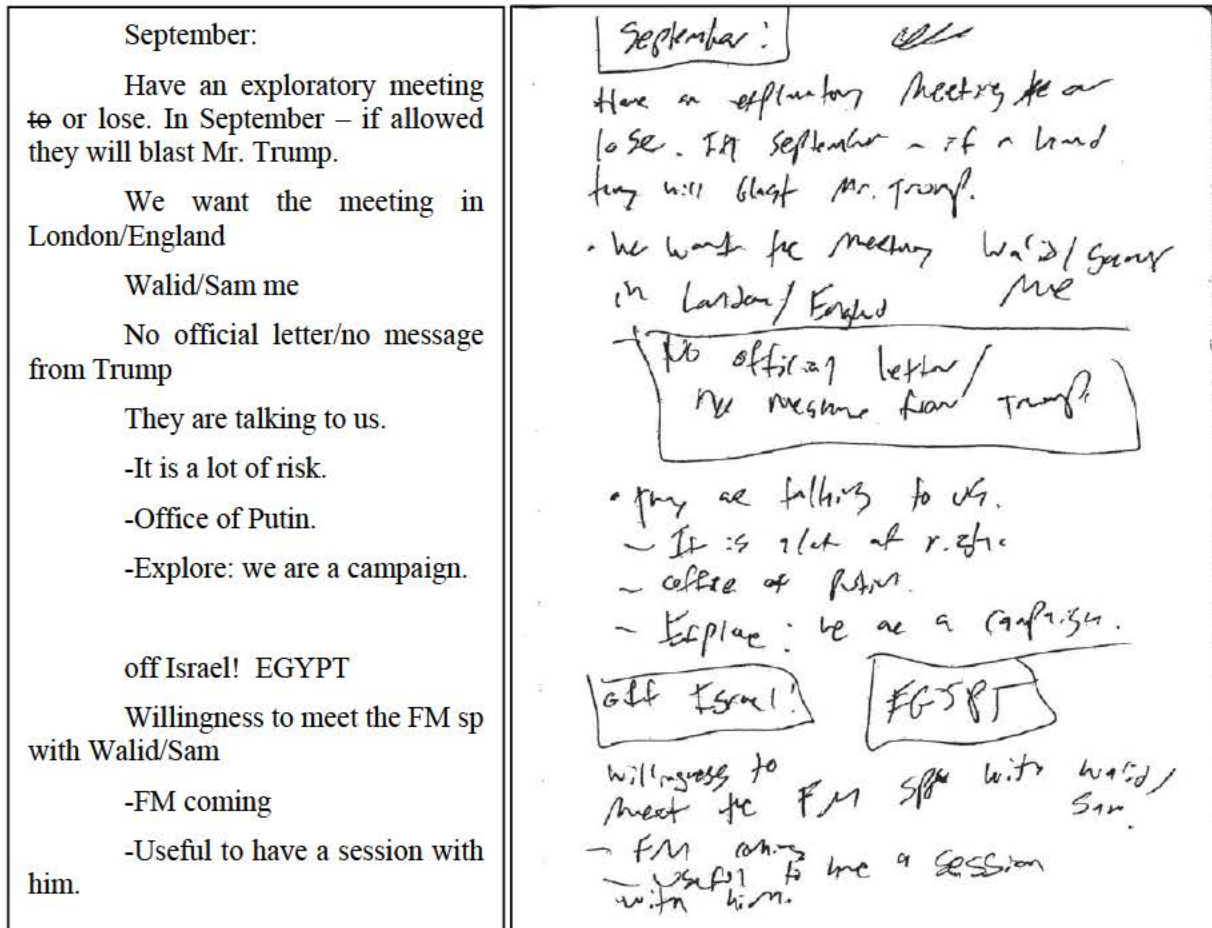 September:
Have an exploratory meeting
to or lose. In September – if allowed
they will blast Mr. Trump.
We want the meeting in
London/England
Walid/Sam me
No official letter/no message
from Trump
They are talking to us.
-It is a lot of risk.
-Office of Putin.
-Explore: we are a campaign.
off Israel! EGYPT
Willingness to meet the FM sp
with Walid/Sam
-FM coming
-Useful to have a session with
him.
September:
Have an exploratory meeting to or
lose. In September - if
they will blast Mr. Trump.
• We want the meeting Walid/Sam
in London/England me
No official letter/
no message from Trump
• They are talking to us.
- It is a lot of risk
- Office of Putin.
- Explore: we are a campaign.
off Israel! EGYPT
Willingness to
meet the FM sp with Walid/
Sam.
- FM coming
- Useful to have a session
with him.